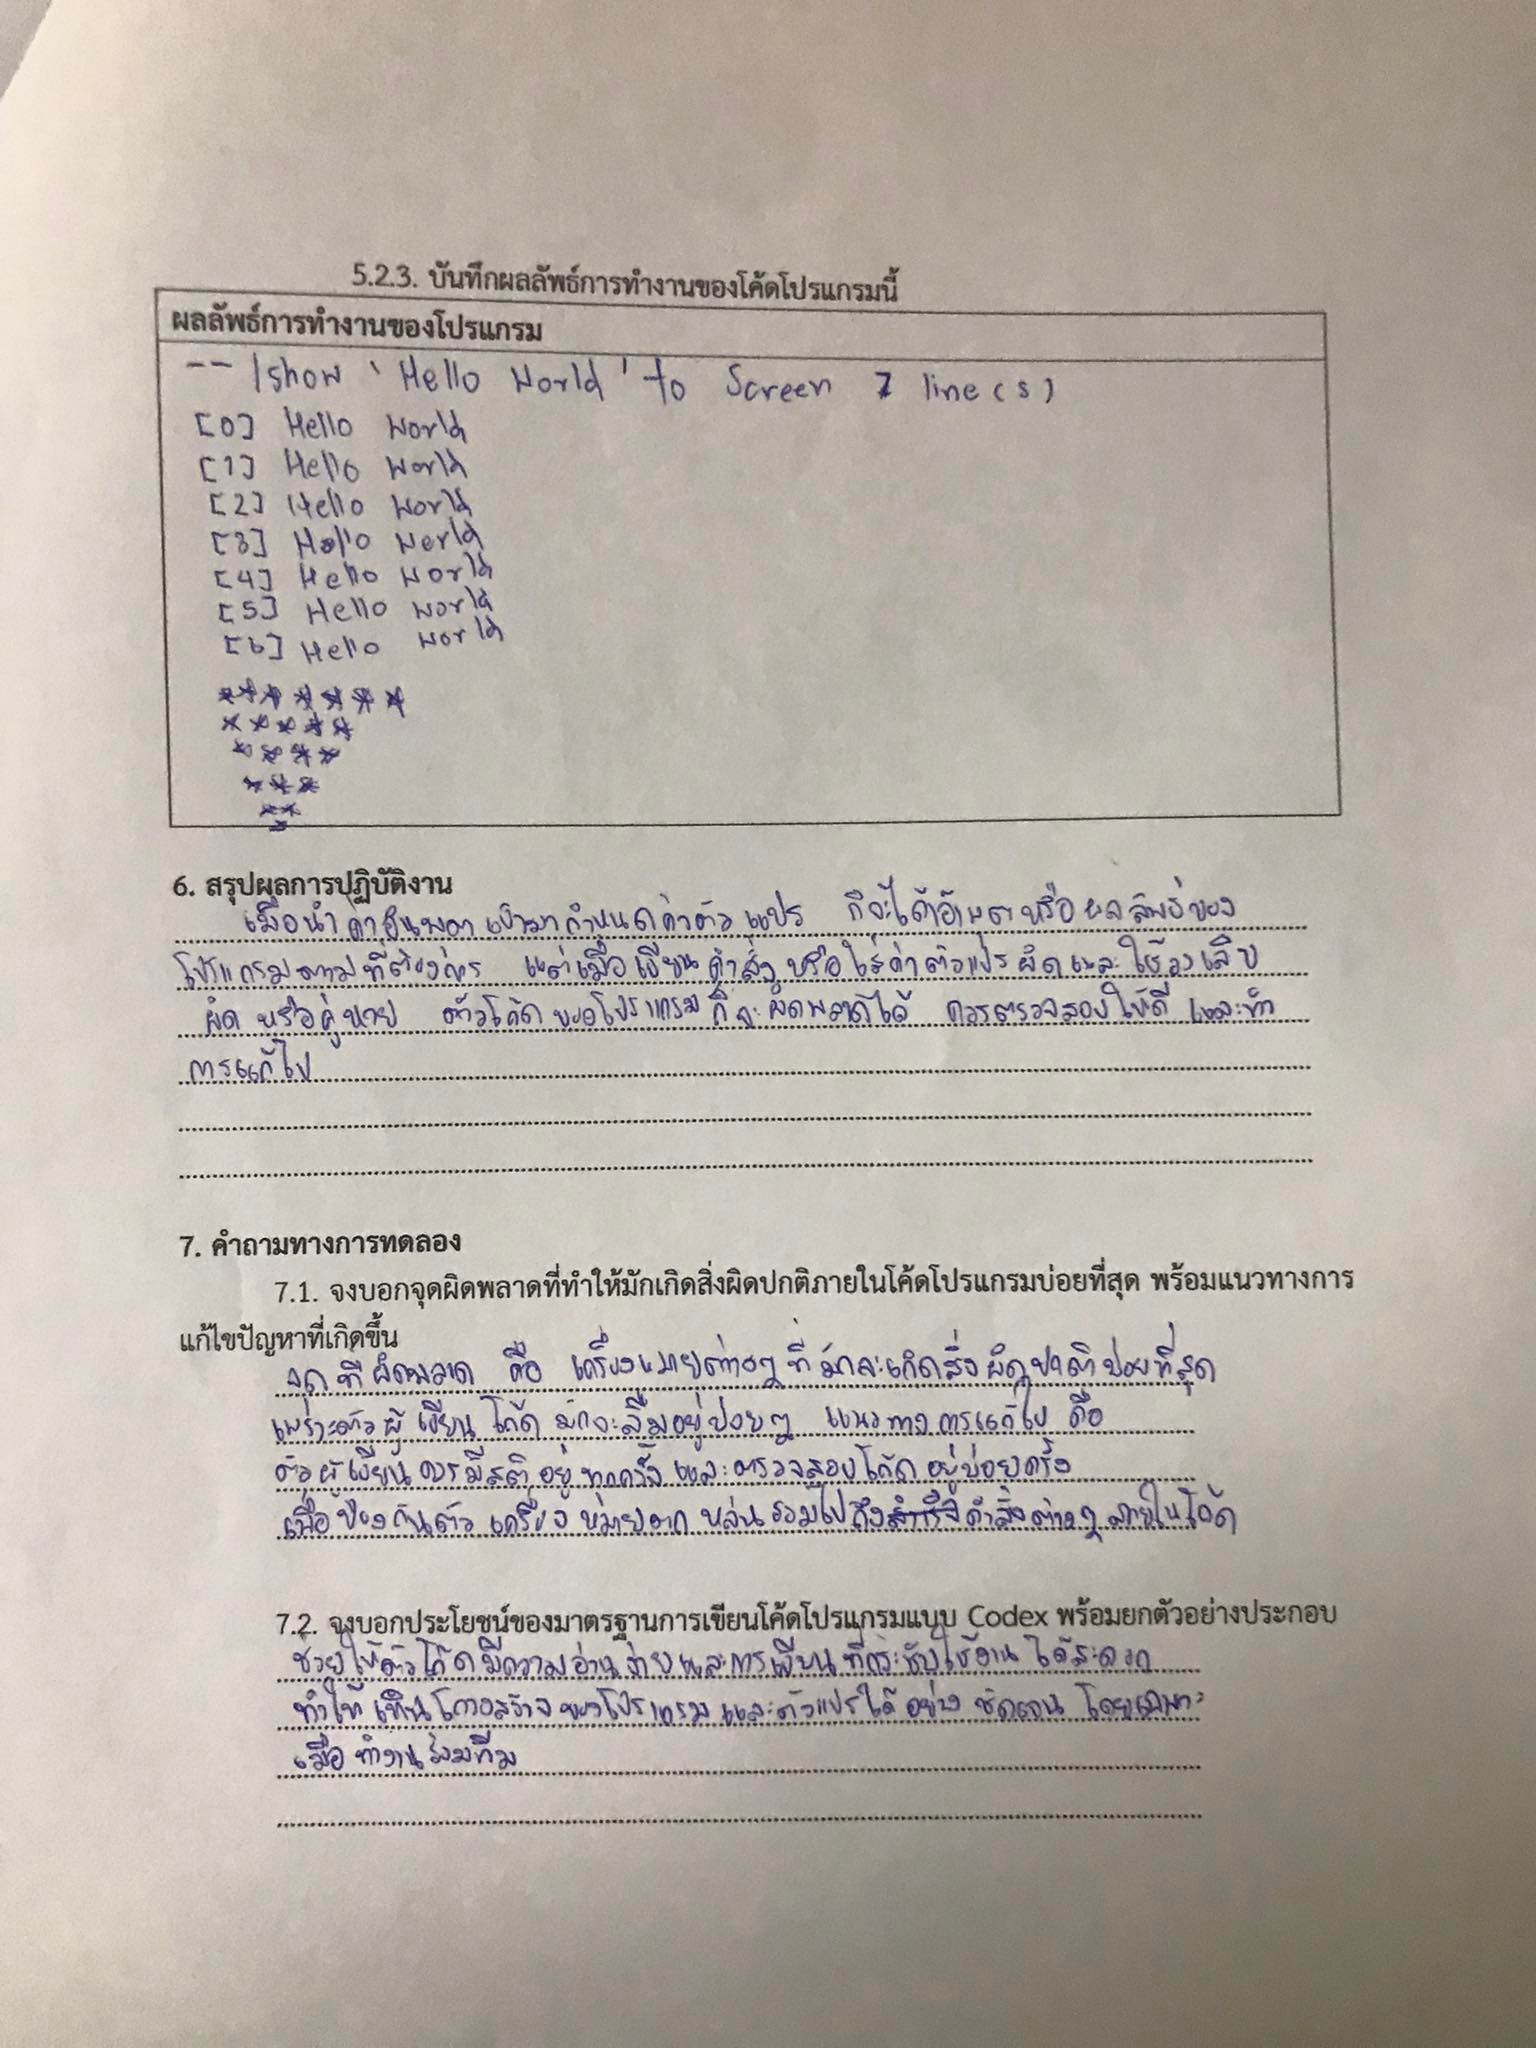 5.2.3. บันทึกผลลัพธ์การทำงานของโค้ดโปรแกรมนี้
ผลลัพธ์การทำงานของโปรแกรม
-- /show 'Hello World' to Screen 7 line(s)
[0] Hello World
[1] Hello World
[2] Hello World
[3] Hello World
[4] Hello World
[5] Hello World
[6] Hello World
*******
*****
****
***
**
*
6. สรุปผลการปฏิบัติงาน
เมื่อนำค่าอินพุตเข้ามากำหนดค่าตัวแปร ก็จะได้เอ้าพุตหรือผลลัพธ์ของ
โปรแกรมตามที่ต้องการ แต่เมื่อเขียนคำสั่งหรือใส่ค่าตัวแปรผิดและใช้วงเล็บ
ผิด หรือสูญหาย ตัวโค้ดของโปรแกรมก็จะผิดพลาดได้ ควรตรวจสอบให้ดี และทำ
การแก้ไข
7. คำถามทางการทดลอง
7.1. จงบอกจุดผิดพลาดที่ทำให้มักเกิดสิ่งผิดปกติภายในโค้ดโปรแกรมบ่อยที่สุด พร้อมแนวทางการ
แก้ไขปัญหาที่เกิดขึ้น
จุดที่ผิดพลาด คือ เครื่องหมายต่างๆ ที่มักจะเกิดสิ่งผิดปกติบ่อยที่สุด
เพราะตัวผู้เขียนโค้ด มักจะลืมอยู่บ่อยๆ แนวทางการแก้ไข คือ
ตัวผู้เขียนควรมีสติอยู่ทุกครั้ง และตรวจสอบโค้ดอยู่บ่อยครั้ง
เพื่อป้องกันตัวเครื่องหมายตกหล่นรวมไปถึง คำสั่งต่างๆ ภายในโค้ด
7.2. จงบอกประโยชน์ของมาตรฐานการเขียนโค้ดโปรแกรมแบบ Codex พร้อมยกตัวอย่างประกอบ
ช่วยให้ตัวโค้ดมีความอ่านง่ายและการเขียนที่กระชับใช้งานได้สะดวก
ทำให้เห็นโครงสร้างของโปรแกรมและตัวแปรได้อย่างชัดเจน โดยเฉพาะ
เมื่อทำงานร่วมทีม